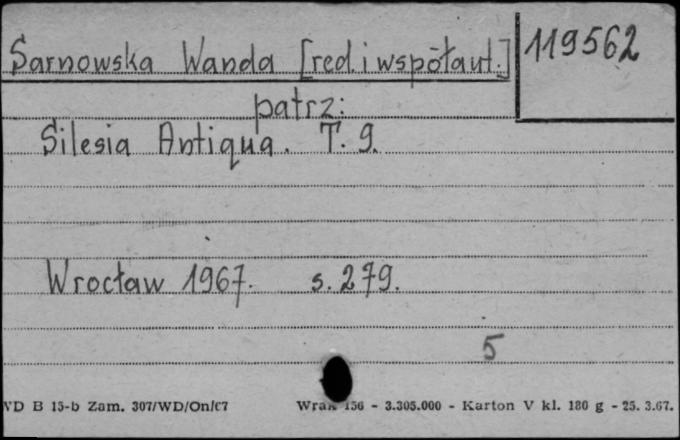 Sarnowska Wanda [red. i współaut.]
119562
patrz:
Silesia Antiqua. T. 9.
Wrocław 1967. s. 279.
5
WD B 15-b Zam. 307/WD/On/67 156 - 3.305.000 - Karton V kl. 180 g - 25. 3.67.